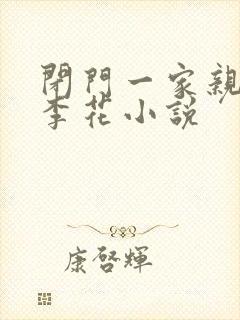 閉門一家親
李花小説
康啓輝